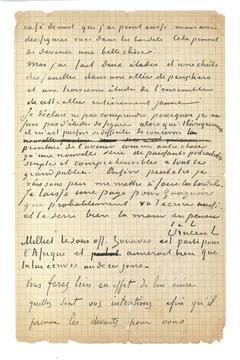 café dont que j'ai peint aussi mais avec
des figures vues dans les bordels. Cela promet
de devenir une belle chose.
Moi j'ai fait deux études d'une chute
des feuilles dans une allée de peupliers
et une troisième étude de l'ensemble
de cette allée entièrement jaune.
Je déclare ne pas comprendre pourquoi je ne
fais pas d'études de figure alors que
il m'est parfois si difficile de concevoir la
peinture de l'avenir comme autre chose
qu'une nouvelle série de portraitistes
simples et compréhensibles à tout le
grand public. Enfin peut-être je
vais sous peu me mettre à faire les bordels.
Je laisse une page pour Gauguin
que probablement va t'écrire aussi
et te serre bien la main en pensée
Vincent
Milliet le sous off. Zouaves est parti pour
l'Afrique et aimerait bien que
tu lui écrives un de ces jours.
Vous ferez bien en effet de lui écrire
quelles sont vos intentions afin qu'il
prenne les devants pour vous